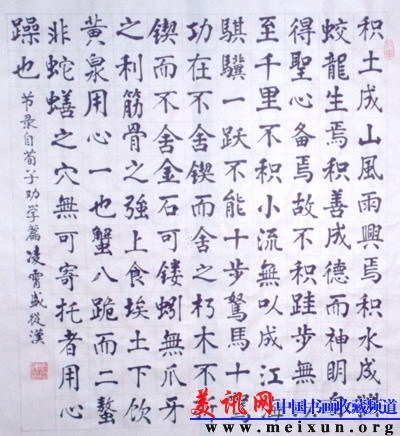 积土成山風雨興焉积水成
蛟龍生焉积善成德而神明
得聖心备焉故不积跬步無
至千里不积小流無以成江
騏驥一跃不能十步駑馬十
功在不舍锲而舍之朽木不
锲而不舍金石可镂蚓無爪牙
之利筋骨之強上食埃土下飲
黄泉用心一也蟹八跪而二螯
非蛇蟮之穴無可寄托者用心
躁也
节录自荀子劝学篇凌霄盛從漢
美讯网中国书画收藏频道
www.meixun.org